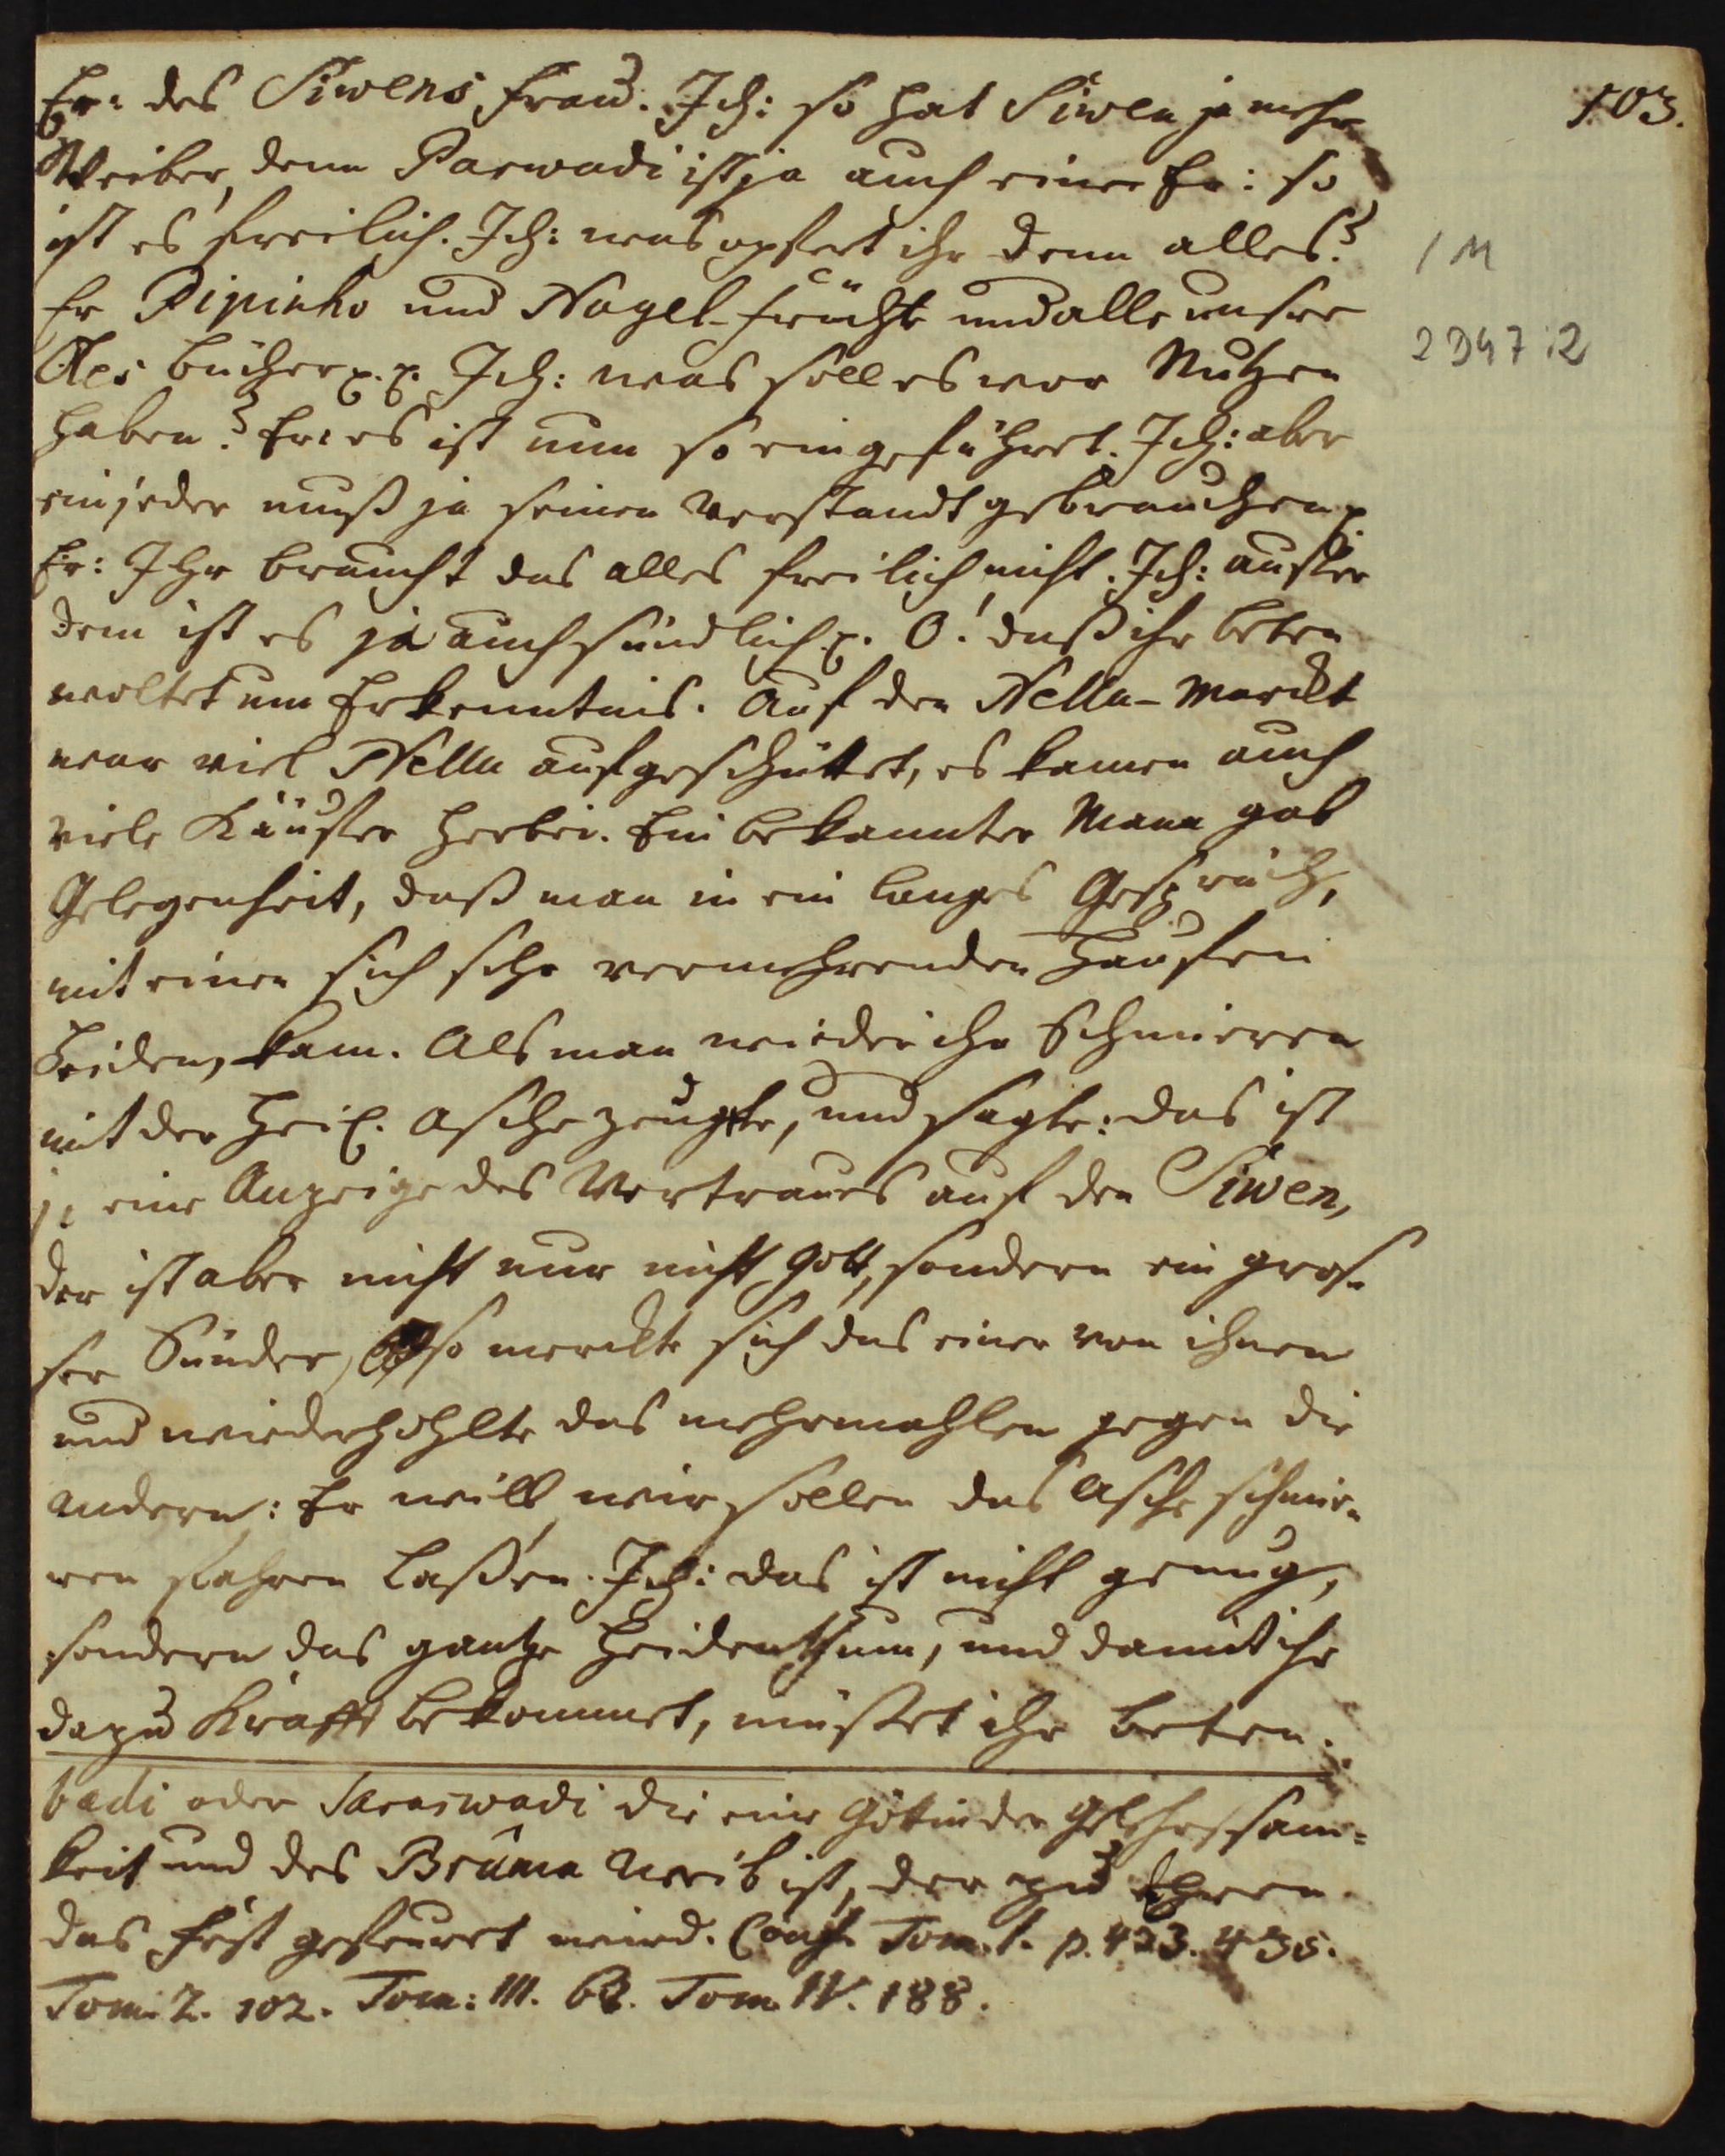 103.
Er: des Siwens Frau. Ich: so hat Siwen ja mehr
Weiber, denn Parwadi ist ja auch eine. Er: so
ist es freilich. Ich: was opfert ihr denn alles?
Er Pipinho und Nagel-früchte und alle unsre
Oles bücher p. p. Ich: was soll es vor Nutzen
haben? Er: es ist nun so eingeführet. Ich: aber
ein jeder muß ja seinen Verstandt gebrauchen p.
Er: Ihr braucht das alles freilich nicht. Ich: ausser
dem ist es ja auch sündlich p. O! daß ihr beten
woltet um Erkenntnis. Auf den Nellu-Marckt
war viel Nellu aufgeschüttet, es kamen auch
viele Käuffer herbei. Ein bekannter Mann gab
Gelegenheit, daß man in ein langes Gespräch,
mit einen sich sehr vermehrenden Hauffen
Heiden, kam. Als man wieder ihr Schmieren
mit der heil. Asche zeugte, und sagte: das ist
ja eine Anzeige des Vertraues auf den Siwen,
der ist aber nicht nur nicht Gott, sondern ein gros-
ser Sünder, so merckte sich das einer von ihnen
und wiederhohlte das mehrmahlen gegen die
andern: Er will, wir sollen das Asche schmie-
ren fahren laßen. Ich: das ist nicht genug,
sondern das gantze Heidenthum, und damit ihr
dazu Krafft bekommet, müsset ihr beten.
badi oder Saraswadi die eine Göttin der Gelehrsam-
keit und des Bruma Weib ist, der zu Ehren
das Fest gefeuret wird. Conf. Tom. 1. p. 423. 435.
Tom. 2. 102. Tom: III. 62. Tom. IV. 188.
1 M
2 D47:2